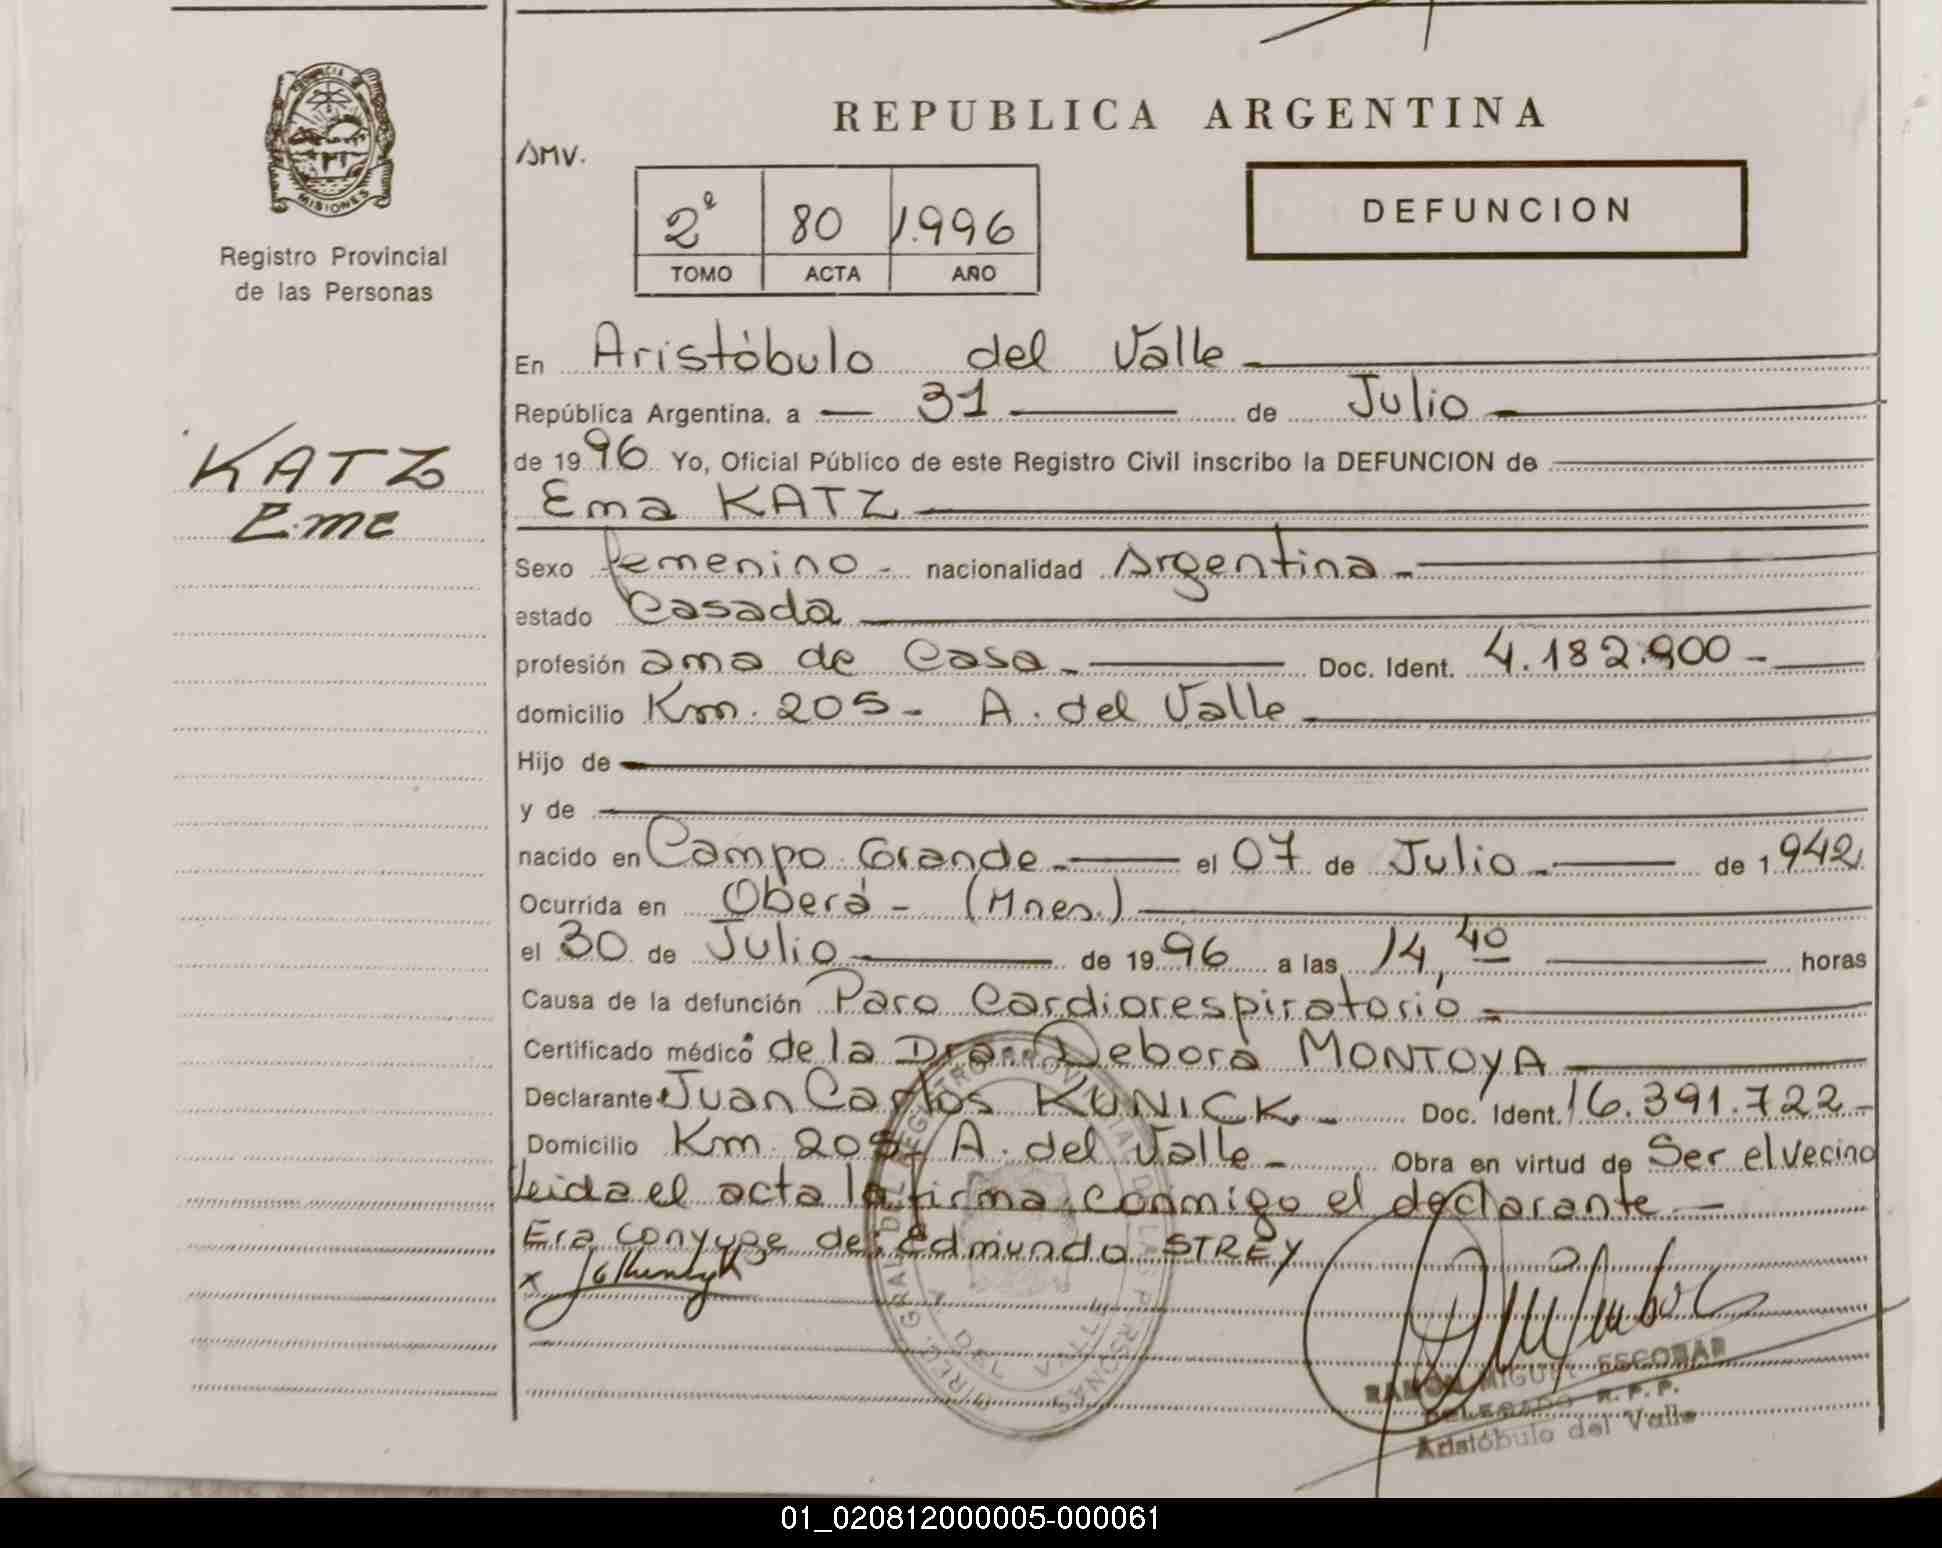 REPUBLICA ARGENTINA
PROVINCIA DE
MISIONES
Registro Provincial
de las Personas
SMV.
2º 80 1.996
TOMO ACTA AÑO
DEFUNCION
En Aristóbulo del Valle
República Argentina, a 31 de Julio
de 1996 Yo, Oficial Público de este Registro Civil inscribo la DEFUNCION de
KATZ
Ema
Ema KATZ
Sexo femenino - nacionalidad Argentina -
estado Casada
profesión ama de Casa - Doc. Ident. 4.182.900 -
domicilio Km. 205 - A. del Valle
Hijo de
y de
nacido en Campo Grande - el 07 de Julio - de 1.942
Ocurrida en Oberá - (Mnes.)
el 30 de Julio de 1996 a las 14,40 horas
Causa de la defunción Paro Cardiorespiratorio
Certificado médico de la Dra. Debora MONTOYA
Declarante Juan Carlos KUNICK - Doc. Ident. 16.391.722 -
Domicilio Km. 205 - A. del Valle - Obra en virtud de Ser el vecino
Leida el acta la firma conmigo el declarante -
Era conyuge de: Edmundo STREY
x
RAMON MIGUEL ESCOBAR
DELEGADO R.P.P.
Aristóbulo del Valle
01_020812000005-000061